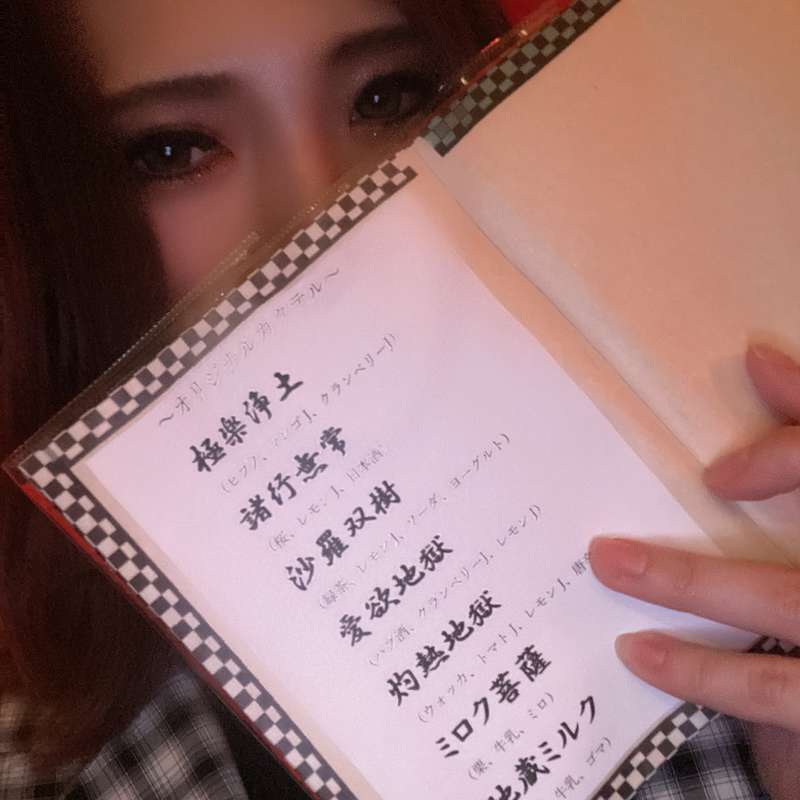 ～オリジナルカクテル～
極樂浄土
(ピーチ、マンゴJ、クランベリーJ)
諸行無常
(桜、レモンJ、日本酒)
沙羅双樹
(緑茶、レモンJ、ソーダ、ヨーグルト)
愛欲地獄
(ハブ酒、クランベリーJ、レモンJ)
灼熱地獄
(ウォッカ、トマトJ、レモンJ、唐辛
ミロク菩薩
(栗、牛乳、ミロ)
地蔵ミルク
牛乳、ゴマ)